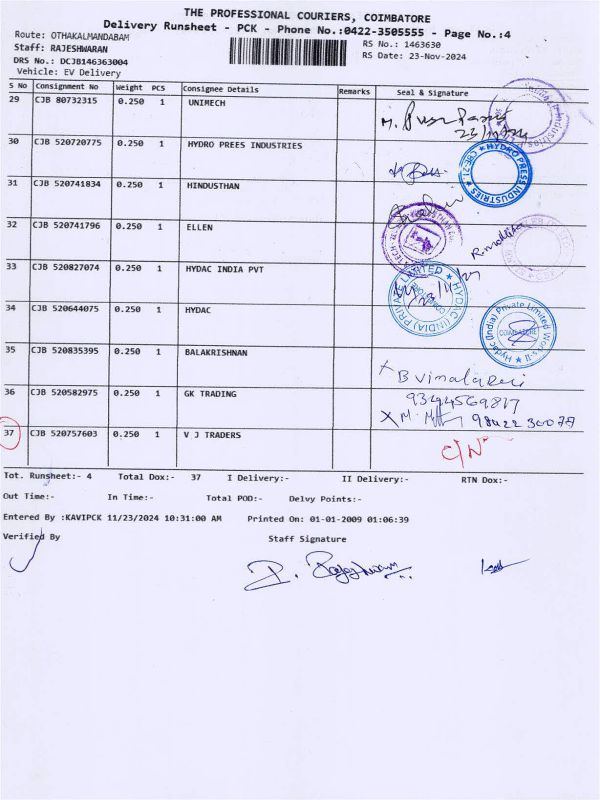 THE PROFESSIONAL COURIERS, COIMBATORE
Delivery Runsheet - PCK - Phone No.:0422-3505555 - Page No.:4
Route: OTHAKALMANDABAM
RS No.: 1463630
Staff: RAJESHWARAN
RS Date: 23-Nov-2024
DRS No.: DCJB146363004
Vehicle: EV Delivery
S No Consignment No Weight PCS Consignee Details Remarks Seal & Signature
29 CJB 80732315 0.250 1 UNIMECH
30 CJB 520720775 0.250 1 HYDRO PREES INDUSTRIES
HYDRO PRESS INDUSTRIES ★ CBE-21 ★
31 CJB 520741834 0.250 1 HINDUSTHAN
32 CJB 520741796 0.250 1 ELLEN
33 CJB 520827074 0.250 1 HYDAC INDIA PVT
HYDAC (INDIA) PRIVATE LIMITED
34 CJB 520644075 0.250 1 HYDAC
Hydac (India) Private Limited Works-II
COIMBATORE
35 CJB 520835395 0.250 1 BALAKRISHNAN
B Vimaladevi
36 CJB 520582975 0.250 1 GK TRADING
9344569817
37 CJB 520757603 0.250 1 V J TRADERS
C/N
Tot. Runsheet:- 4 Total Dox:- 37 I Delivery:- II Delivery:- RTN Dox:-
Out Time:- In Time:- Total POD:- Delvy Points:-
Entered By :KAVIPCK 11/23/2024 10:31:00 AM Printed On: 01-01-2009 01:06:39
Verified By Staff Signature